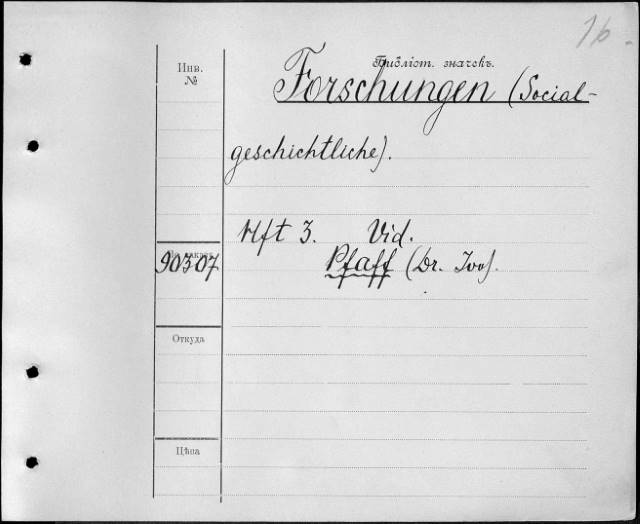 16
Инв.
№
Библіот. значекъ.
Forschungen (Social-
geschichtliche).
Hft 3. Vid.
90307
Pfaff (Dr. Ivo).
Откуда
Цѣна